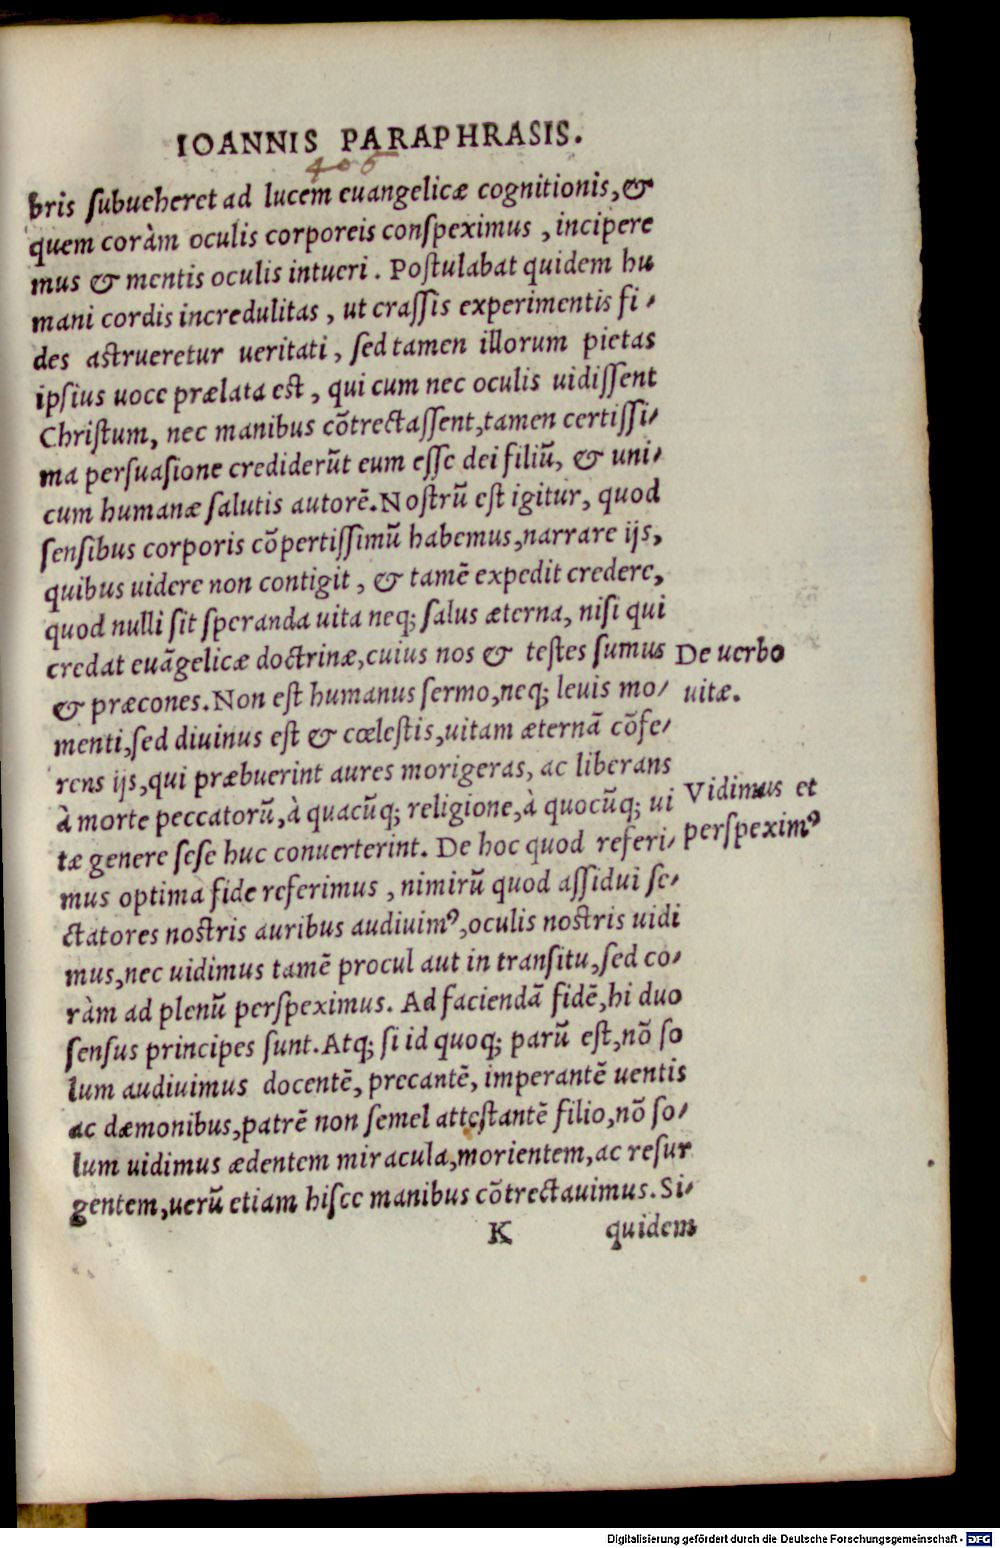 IOANNIS PARAPHRASIS.
406
bris ſubueheret ad lucem euangelicæ cognitionis, &
quem coràm oculis corporeis conſpeximus , incipere
mus & mentis oculis intueri . Poſtulabat quidem hu
mani cordis incredulitas , ut craſſis experimentis fi⸗
des aſtrueretur ueritati , ſed tamen illorum pietas
ipſius uoce prælata eſt , qui cum nec oculis uidiſſent
Chriſtum, nec manibus cõtrectaſſent, tamen certiſſi⸗
ma perſuaſione crediderũt eum eſſe dei filiũ, & uni⸗
cum humanæ ſalutis autorẽ. Noſtrũ eſt igitur, quod
ſenſibus corporis cõpertiſſimũ habemus, narrare ijs,
quibus uidere non contigit , & tamẽ expedit credere,
quod nulli ſit ſperanda uita neq; ſalus æterna, niſi qui
credat euãgelicæ doctrinæ, cuius nos & teſtes ſumus
& præcones. Non eſt humanus ſermo, neq; leuis mo⸗
menti, ſed diuinus eſt & cœleſtis, uitam æternã cõfe⸗
rens ijs, qui præbuerint aures morigeras, ac liberans
à morte peccatorũ, à quacũq; religione, à quocũq; ui
tæ genere ſeſe huc conuerterint. De hoc quod referi⸗
mus optima fide referimus , nimirũ quod aſſidui ſe⸗
ctatores noſtris auribus audiuimꝰ, oculis noſtris uidi
mus, nec uidimus tamẽ procul aut in tranſitu, ſed co⸗
ràm ad plenũ perſpeximus. Ad faciendã fidẽ, hi duo
ſenſus principes ſunt. Atq; ſi id quoq; parũ eſt, nõ ſo
lum audiuimus docentẽ, precantẽ, imperantẽ uentis
ac dæmonibus, patrẽ non ſemel atteſtantẽ filio, nõ ſo⸗
lum uidimus ædentem miracula, morientem, ac reſur
gentem, uerũ etiam hiſce manibus cõtrectauimus. Si⸗
K quidem
De uerbo
uitæ.
Vidimus et
perſpeximꝰ
Digitalisierung gefördert durch die Deutsche Forschungsgemeinschaft - DFG